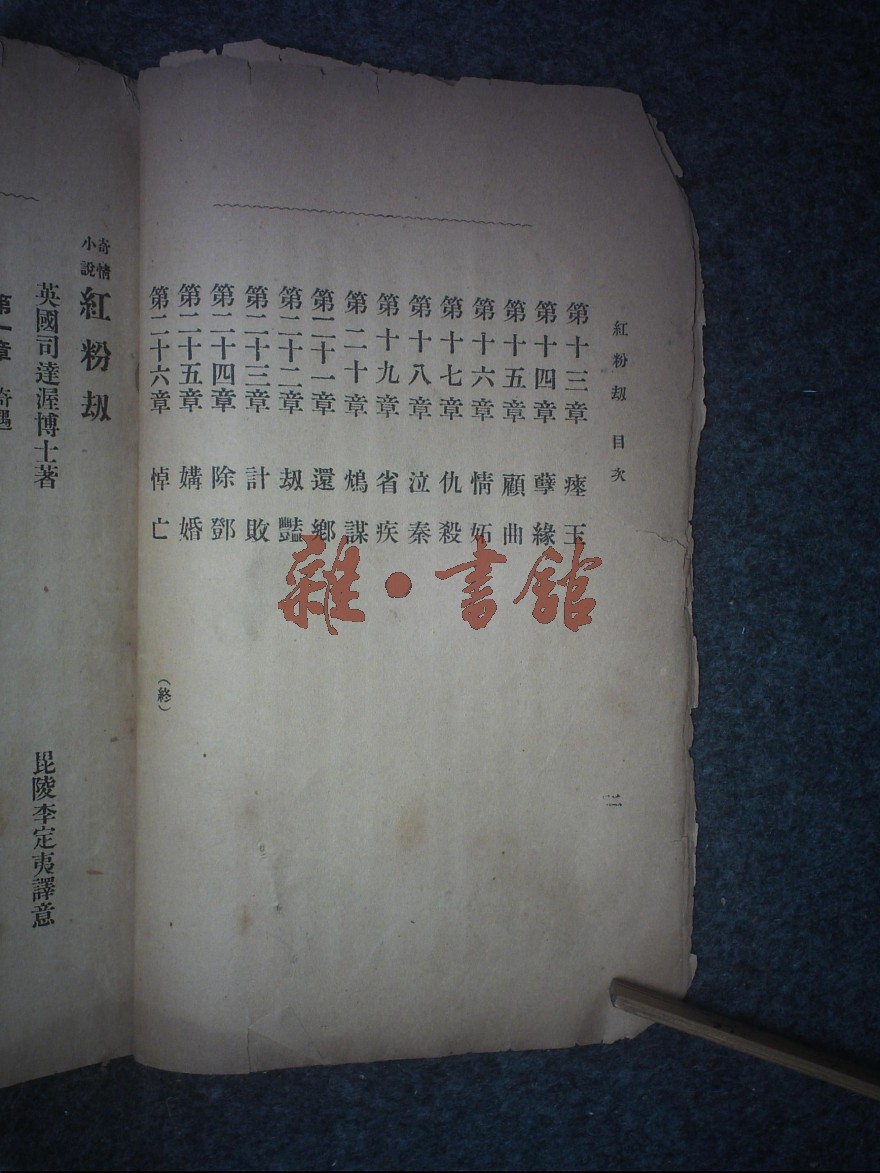 紅粉刼 目次
第十三章 瘞玉
第十四章 孽緣
第十五章 顧曲
第十六章 情妬
第十七章 仇殺
第十八章 泣秦
第十九章 省疾
第二十章 鴆謀
第二十一章 還鄉
第二十二章 刼豔
第二十三章 計敗
第二十四章 除鄧
第二十五章 媾婚
第二十六章 悼亡
(終)
二
奇情小說 紅粉刼
英國司達渥博士著 毘陵李定夷譯意
第一章 奇遇
雜·書館